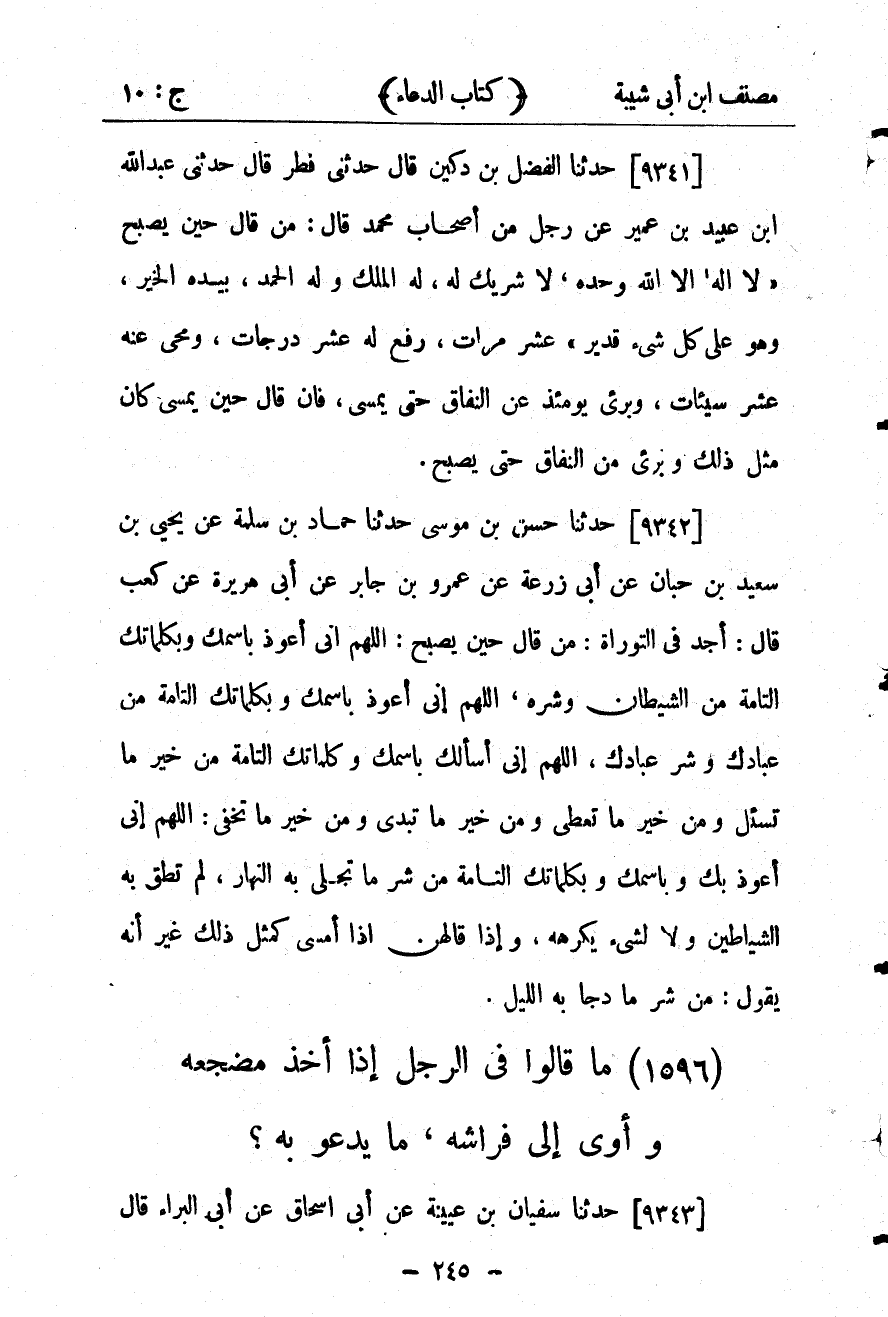 مصنف ابن أبى شيبة ﴿ كتاب الدعاء ﴾ ج : ١٠
[٩٣٤١] حدثنا الفضل بن دكين قال حدثنى فطر قال حدثنى عبدالله
ابن عبيد بن عمير عن رجل من أصحاب محمد قال : من قال حين يصبح
« لا اله الا الله وحده ، لا شريك له ، له الملك و له الحمد ، بيده الخير ،
وهو على كل شىء قدير » عشر مرات ، رفع له عشر درجات ، ومحى عنه
عشر سيئات ، وبرئ يومئذ عن النفاق حتى يمسى ، فان قال حين يمسى كان
مثل ذلك و برئ من النفاق حتى يصبح .
[٩٣٤٢] حدثنا حسن بن موسى حدثنا حماد بن سلمة عن يحيى بن
سعيد بن حبان عن أبى زرعة عن عمرو بن جابر عن أبى هريرة عن كعب
قال : أجد فى التوراة : من قال حين يصبح : اللهم انى أعوذ باسمك وبكلماتك
التامة من الشيطان وشره ، اللهم إنى أعوذ باسمك و بكلماتك التامة من
عبادك و شر عبادك ، اللهم إنى أسألك باسمك و كلماتك التامة من خير ما
تسئل و من خير ما تعطى و من خير ما تبدى و من خير ما تخفى : اللهم إنى
أعوذ بك و باسمك و بكلماتك التامة من شر ما تجلى به النهار ، لم تطق به
الشياطين و لا لشىء يكرهه ، و إذا قالهن اذا أمسى كمثل ذلك غير أنه
يقول : من شر ما دجا به الليل .
(١٥٩٦) ما قالوا فى الرجل إذا أخذ مضجعه
و أوى إلى فراشه ، ما يدعو به ؟
[٩٣٤٣] حدثنا سفيان بن عيينة عن أبى اسحاق عن أبى البراء قال
– ٢٤٥ –